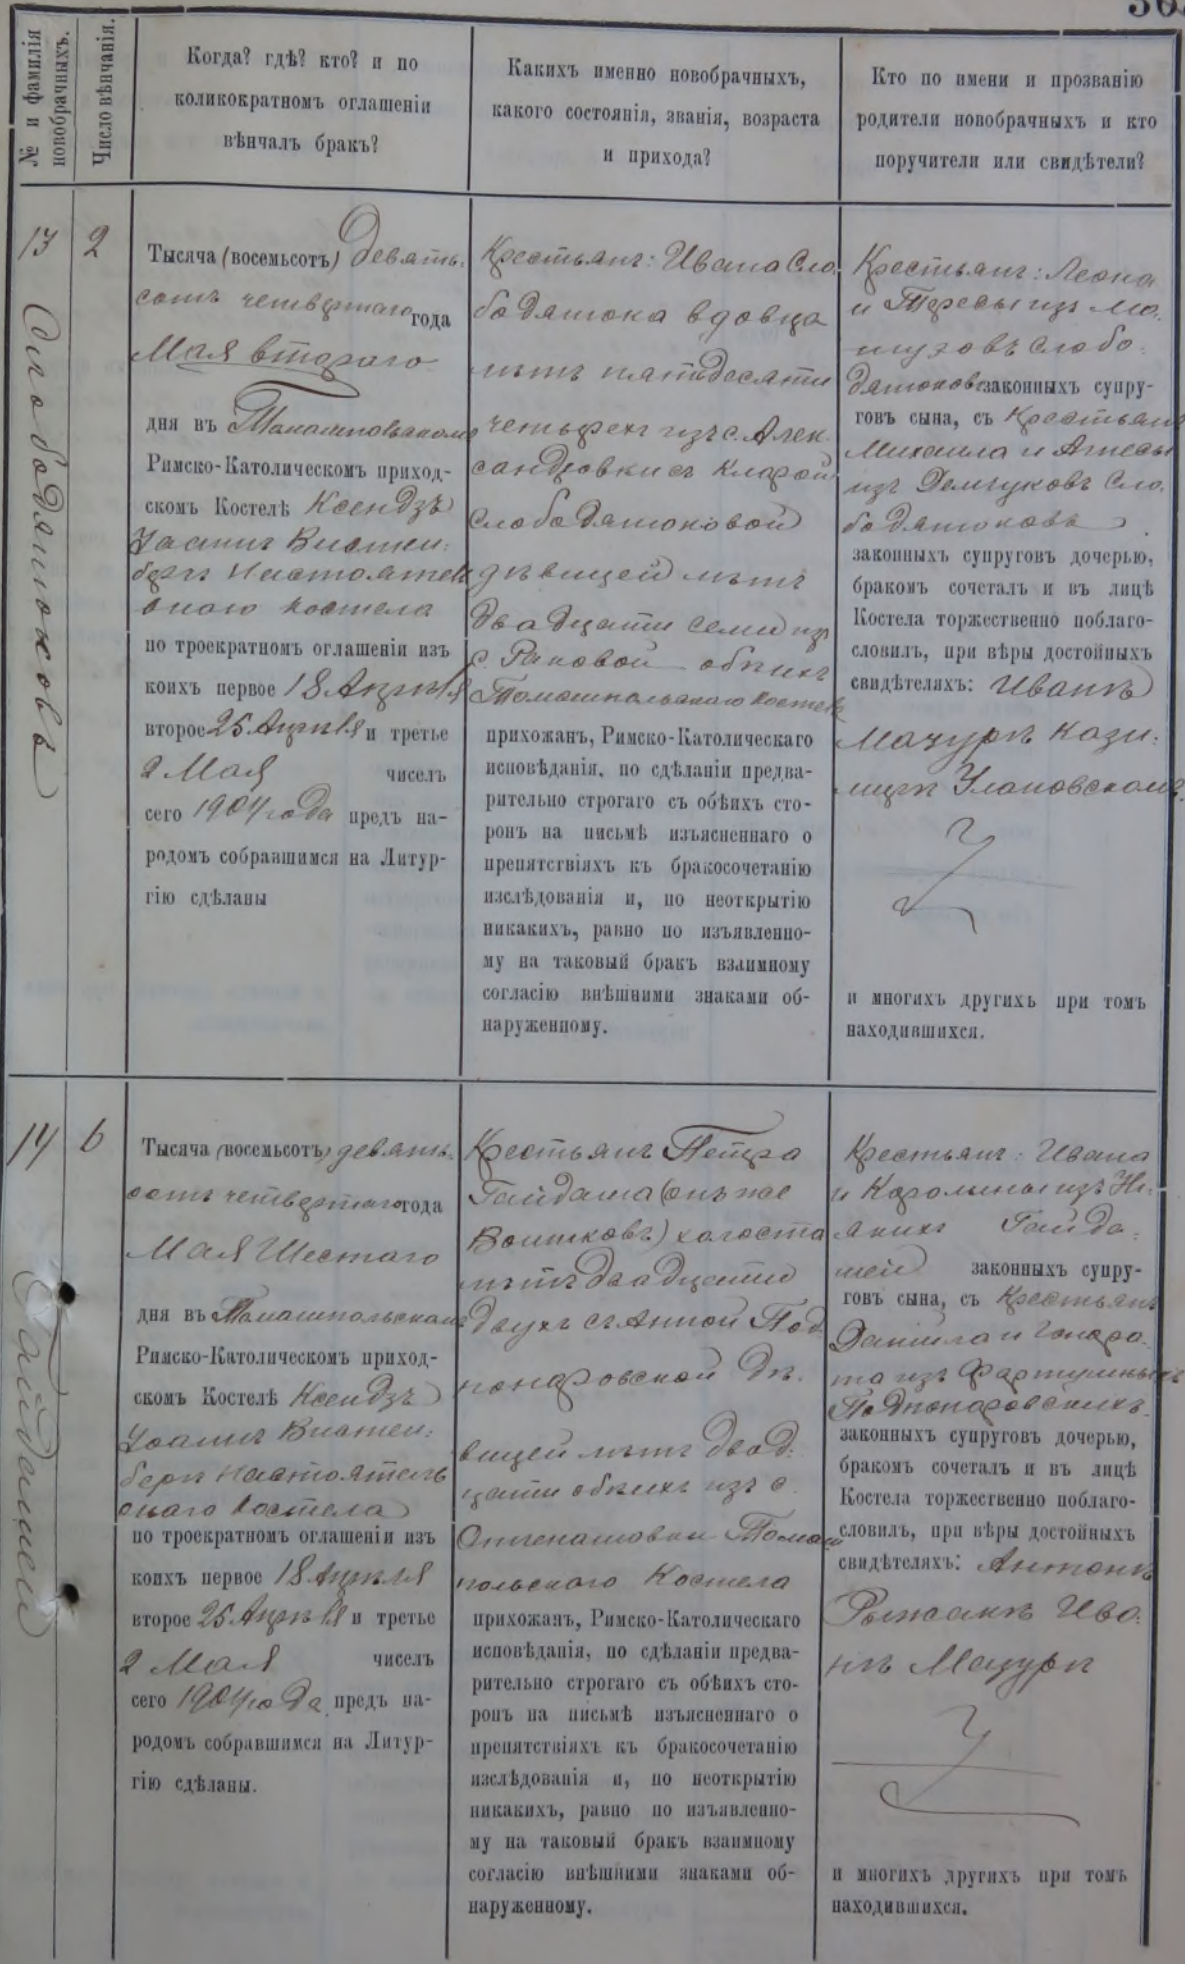 № и фамилія новобрачныхъ.
Число вѣнчанія.
Когда? гдѣ? кто? и по
коликократномъ оглашеніи
вѣнчалъ бракъ?
Какихъ именно новобрачныхъ,
какого состоянія, званія, возраста
и прихода?
Кто по имени и прозванію
родители новобрачныхъ и кто
поручители или свидѣтели?
13
Слободянюковъ
2
Тысяча (восемьсотъ) девять-
сотъ четвертаго года
Мая втораго
дня въ Томашпольскомъ
Римско-Католическомъ приход-
скомъ Костелѣ Ксендзъ
Іоаннъ
бергъ Настоятель
онаго костела
по троекратномъ оглашеніи изъ
коихъ первое 18 Апрѣля
второе 25 Апрѣля и третье
2 Мая чиселъ
сего 1904 года предъ на-
родомъ собравшимся на Литур-
гію сдѣланы
Крестьянъ: Ивана Сло-
бодянюка вдовца
лѣтъ пятидесяти
четырехъ изъ с. Алек-
сандровки съ Кларой
Слободянюковой
дѣвицей лѣтъ
двадцати семи изъ
с. Раковой обоихъ
Томашпольскаго Костела
прихожанъ, Римско-Католическаго
исповѣданія, по сдѣланіи предва-
рительно строгаго съ обѣихъ сто-
ронъ на письмѣ изъясненнаго о
препятствіяхъ къ бракосочетанію
изслѣдованія и, по неоткрытію
никакихъ, равно по изъявленно-
му на таковый бракъ взаимному
согласію внѣшними знаками об-
наруженному.
Крестьянъ: Леона
и Терезы изъ
Слобо-
дянюковъ законныхъ супру-
говъ сына, съ Крестьянъ
Михаила и Агнесы
изъ Демчуковъ Сло-
бодянюковъ
законныхъ супруговъ дочерью,
бракомъ сочеталъ и въ лицѣ
Костела торжественно поблаго-
словилъ, при вѣры достойныхъ
свидѣтеляхъ: Иванѣ
Мазурѣ Кази-
мирѣ Улановскомъ
и многихъ другихъ при томъ
находившихся.
14
Гайдашей
6
Тысяча (восемьсотъ) девять-
сотъ четвертаго года
Мая Шестаго
дня въ Томашпольскомъ
Римско-Католическомъ приход-
скомъ Костелѣ Ксендзъ
Іоаннъ
бергъ Настоятель
онаго Костела
по троекратномъ оглашеніи изъ
коихъ первое 18 Апрѣля
второе 25 Апрѣля и третье
2 Мая чиселъ
сего 1904 года предъ на-
родомъ собравшимся на Литур-
гію сдѣланы.
Крестьянъ Петра
Гайдаша (онъ же
Войтковъ) холоста
лѣтъ двадцати
двухъ съ Анной Под-
понаровской дѣ-
вицей лѣтъ двад-
цати обоихъ изъ с.
Томаш-
польскаго Костела
прихожанъ, Римско-Католическаго
исповѣданія, по сдѣланіи предва-
рительно строгаго съ обѣихъ сто-
ронъ на письмѣ изъясненнаго о
препятствіяхъ къ бракосочетанію
изслѣдованія и, по неоткрытію
никакихъ, равно по изъявленно-
му на таковый бракъ взаимному
согласію внѣшними знаками об-
наруженному.
Крестьянъ: Ивана
и Каролины изъ
Гайда-
шей законныхъ супру-
говъ сына, съ Крестьянъ
Даніила и Гонора-
та изъ
Подпонаровскихъ
законныхъ супруговъ дочерью,
бракомъ сочеталъ и въ лицѣ
Костела торжественно поблаго-
словилъ, при вѣры достойныхъ
свидѣтеляхъ: Антонѣ
Рыжакѣ Ива-
нѣ Мазурѣ
и многихъ другихъ при томъ
находившихся.